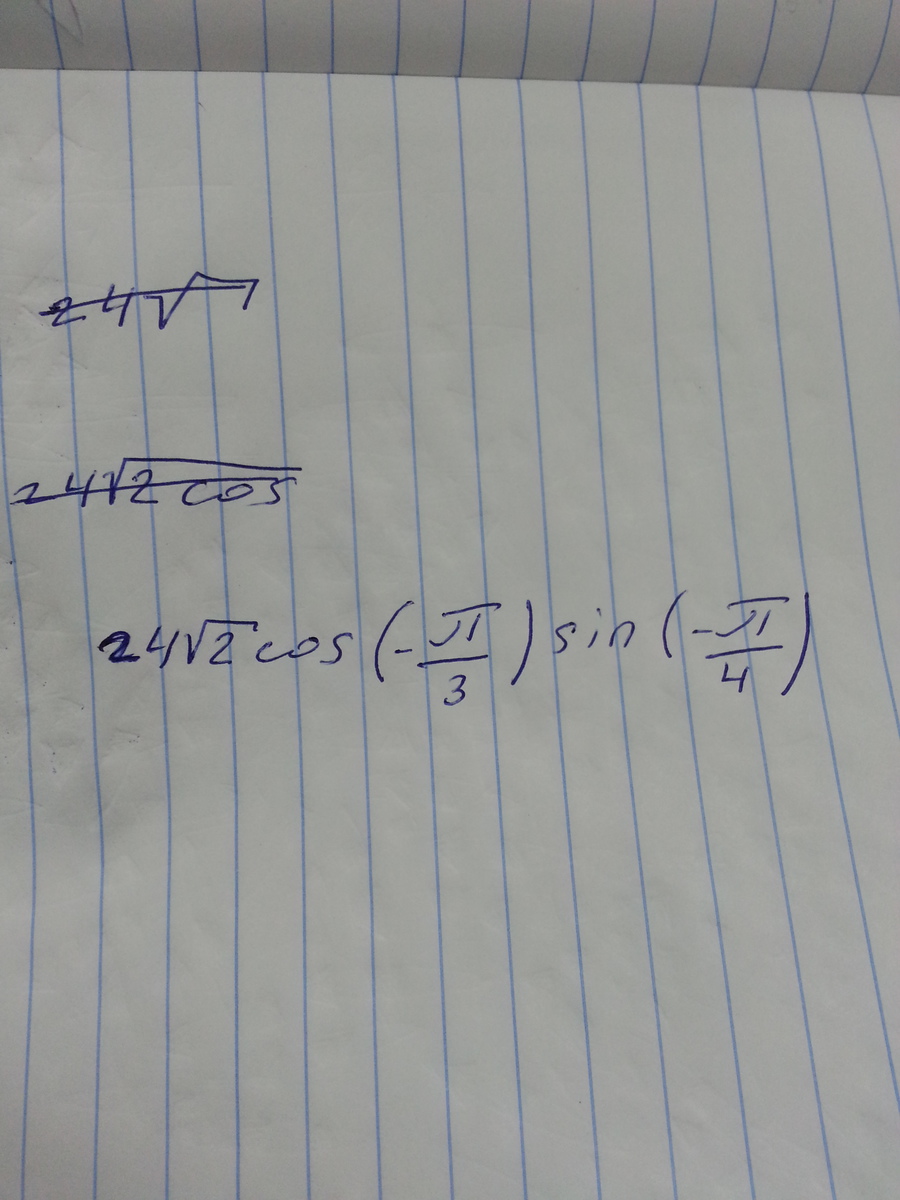 24√
24√2 cos
24√2 cos (-π/3) sin (-π/4)